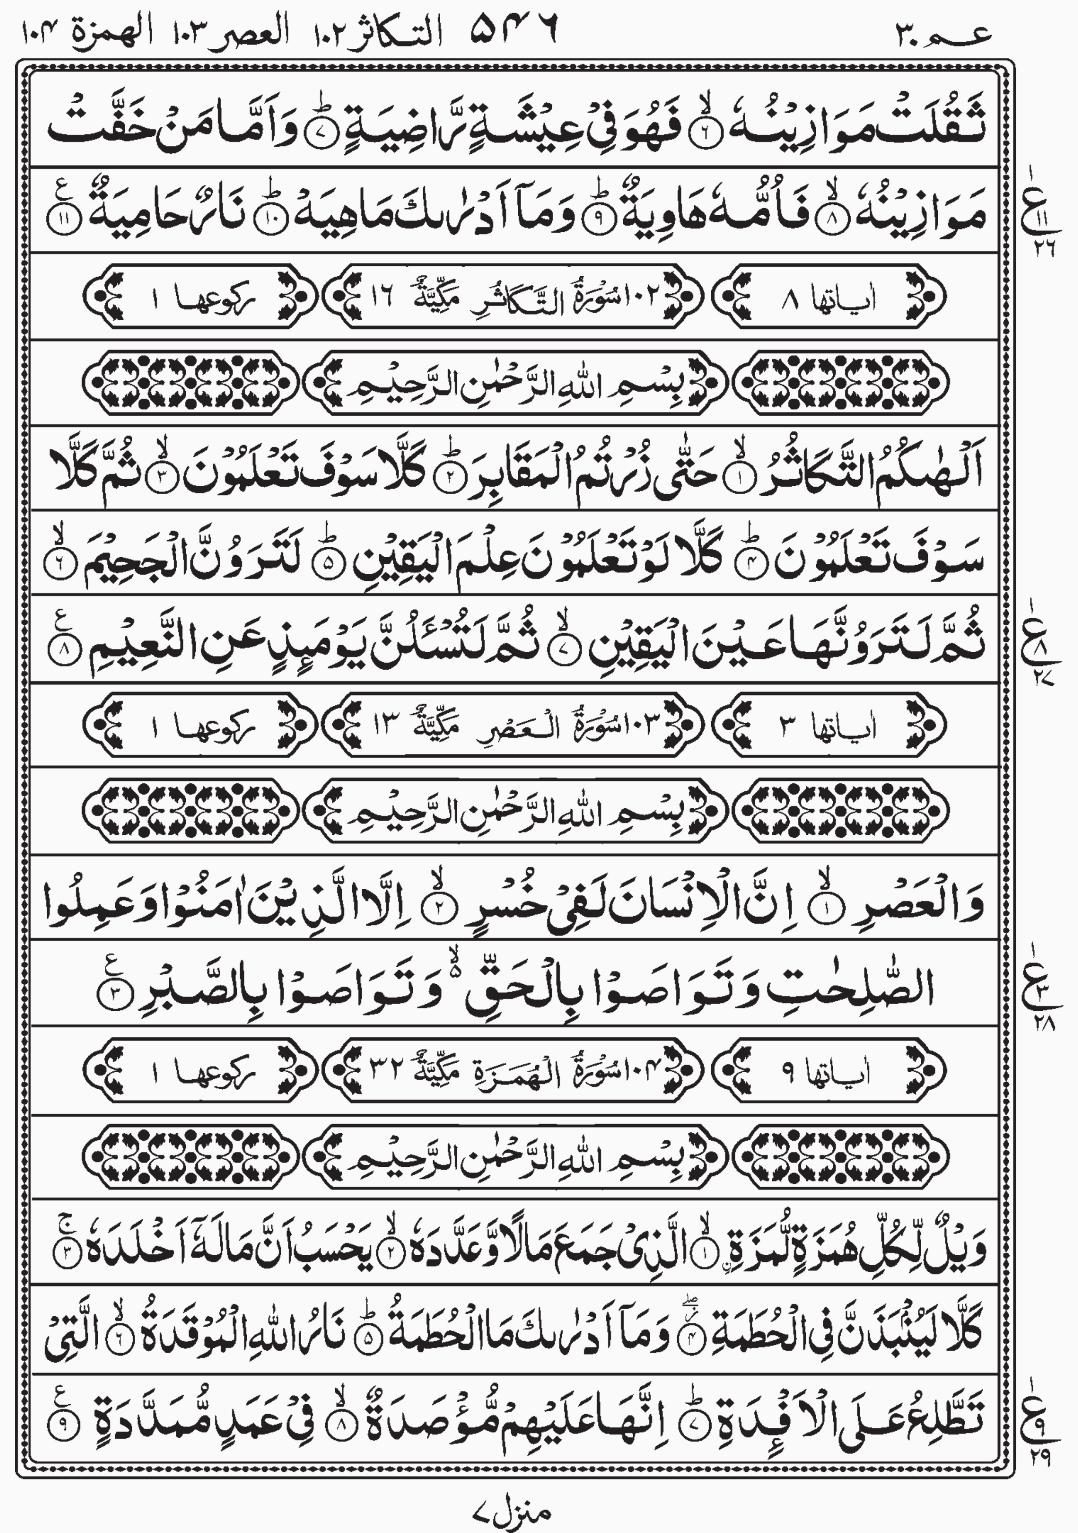 عـم ٣٠ ۵۴۶ التکاثر ١٠٢ العصر ١٠٣ الهمزة ١٠۴
ثَقُلَتْ مَوَازِیْنُهٗ ۙ﴿۶﴾ فَهُوَ فِیْ عِیْشَةٍ رَّاضِیَةٍ ؕ﴿۷﴾ وَاَمَّا مَنْ خَفَّتْ
مَوَازِیْنُهٗ ۙ﴿۸﴾ فَاُمُّهٗ هَاوِیَةٌ ؕ﴿۹﴾ وَمَاۤ اَدْرٰىكَ مَاهِیَهْ ؕ﴿۱۰﴾ نَارٌ حَامِیَةٌ ﴿۱۱﴾ ع
١ ع ١١ ٢٦
اٰیاتها ۸ ١٠٢ سُوْرَةُ التَّكَاثُرِ مَكِّیَّةٌ ١٦ رکوعها ١
بِسْمِ اللّٰهِ الرَّحْمٰنِ الرَّحِیْمِ
اَلْهٰىكُمُ التَّكَاثُرُ ۙ﴿۱﴾ حَتّٰی زُرْتُمُ الْمَقَابِرَ ؕ﴿۲﴾ كَلَّا سَوْفَ تَعْلَمُوْنَ ۙ﴿۳﴾ ثُمَّ كَلَّا
سَوْفَ تَعْلَمُوْنَ ؕ﴿۴﴾ كَلَّا لَوْ تَعْلَمُوْنَ عِلْمَ الْیَقِیْنِ ؕ﴿۵﴾ لَتَرَوُنَّ الْجَحِیْمَ ۙ﴿۶﴾
ثُمَّ لَتَرَوُنَّهَا عَیْنَ الْیَقِیْنِ ۙ﴿۷﴾ ثُمَّ لَتُسْـَٔلُنَّ یَوْمَىِٕذٍ عَنِ النَّعِیْمِ ﴿۸﴾ ع
١ ع ٨ ٢٧
اٰیاتها ۳ ١٠٣ سُوْرَةُ الْعَصْرِ مَكِّیَّةٌ ١٣ رکوعها ١
بِسْمِ اللّٰهِ الرَّحْمٰنِ الرَّحِیْمِ
وَالْعَصْرِ ۙ﴿۱﴾ اِنَّ الْاِنْسَانَ لَفِیْ خُسْرٍ ۙ﴿۲﴾ اِلَّا الَّذِیْنَ اٰمَنُوْا وَعَمِلُوا
الصّٰلِحٰتِ وَتَوَاصَوْا بِالْحَقِّ ۙ۬ وَتَوَاصَوْا بِالصَّبْرِ ﴿۳﴾ ع
١ ع ٣ ٢٨
اٰیاتها ۹ ١٠۴ سُوْرَةُ الْهُمَزَةِ مَكِّیَّةٌ ٣٢ رکوعها ١
بِسْمِ اللّٰهِ الرَّحْمٰنِ الرَّحِیْمِ
وَیْلٌ لِّكُلِّ هُمَزَةٍ لُّمَزَةِ ۙ﴿۱﴾ ۟الَّذِیْ جَمَعَ مَالًا وَّعَدَّدَهٗ ۙ﴿۲﴾ یَحْسَبُ اَنَّ مَالَهٗۤ اَخْلَدَهٗ ۚ﴿۳﴾
كَلَّا لَیُنْۢبَذَنَّ فِی الْحُطَمَةِ ۖ﴿۴﴾ وَمَاۤ اَدْرٰىكَ مَا الْحُطَمَةُ ؕ﴿۵﴾ نَارُ اللّٰهِ الْمُوْقَدَةُ ۙ﴿۶﴾ الَّتِیْ
تَطَّلِعُ عَلَی الْاَفْـِٕدَةِ ؕ﴿۷﴾ اِنَّهَا عَلَیْهِمْ مُّؤْصَدَةٌ ۙ﴿۸﴾ فِیْ عَمَدٍ مُّمَدَّدَةٍ ﴿۹﴾ ع
١ ع ٩ ٢٩
منزل ۷